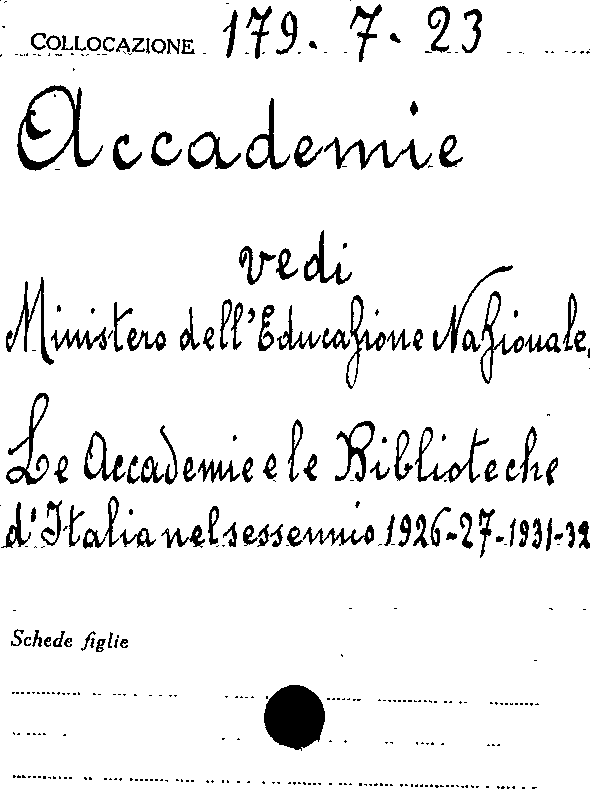 COLLOCAZIONE 179. 7. 23
Accademie
vedi
Ministero dell'Educazione Nazionale,
Le Accademie e le Biblioteche
d'Italia nel sessennio 1926-27-1931-32
Schede figlie